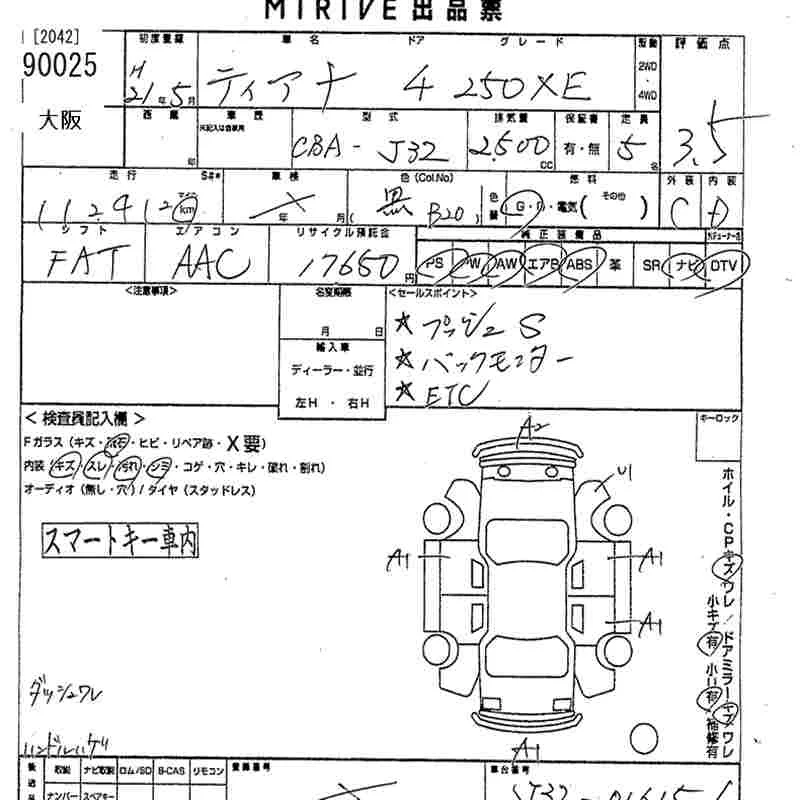 MIRIVE 出品票
[2042]
90025
大阪
初度登録 車名 ドア グレード 駆動 評価点
H21年5月 ティアナ 4 250XE 2WD 4WD 3.5
車歴 型式 排気量 保証書 定員
年 CBA-J32 2500CC 有・無 5名
走行 S#* 車検 色(Col.No) 燃料 外装 内装
112412km 年 月 黒 B20 G・D・電気( その他 ) C D
シフト エアコン リサイクル預託金 純正装備品
FAT AAC 17650円 PS PW AW エアB ABS 革 SR ナビ DTV
<注意事項> 名変期限 <セールスポイント>
月 日
☆プッシュS
輸入車
☆バックモニター
ディーラー・並行
☆ETC
左H・右H
<検査員記入欄> キーロック
Fガラス(キズ・飛石・ヒビ・リペア跡・X要)
内装(キズ・スレ・汚れ・シミ・コゲ・穴・キレ・破れ・割れ)
オーディオ(無し・穴)/タイヤ(スタッドレス)
スマートキー車内
A2
U1
A1 A1
A1
A1
ホイル・CPキズワレ/ドアミラーキズワレ
小キズ有 小U有 補修有
ダッシュワレ
ハンドルハゲ
取説 ナビ取説 ロム/SD B-CAS リモコン 登録番号 車台番号
ナンバー スペアキー